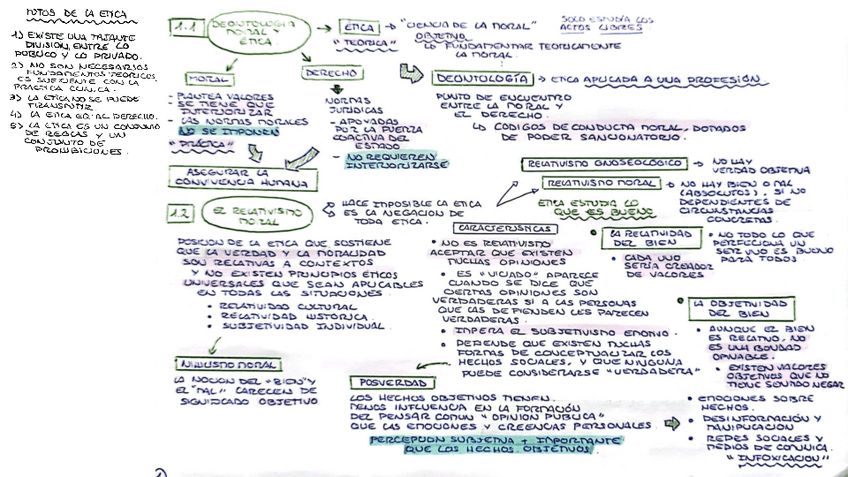 MITOS DE LA ETICA
1) EXISTE UNA TAJANTE
DIVISION, ENTRE LO
PUBLICO Y LO PRIVADO.
2) NO SON NECESARIOS
FUNDAMENTOS TEORICOS,
ES SUFICIENTE CON LA
PRACTICA CLINICA.
3) LA ETICA NO SE PUEDE
TRANSMITIR
4) LA ETICA EQ. AL DERECHO.
5) LA ETICA ES UN CONJUNTO
DE REGLAS Y UN
CONJUNTO DE
PROHIBICIONES.
1.1
DEONTOLOGIA
MORAL Y
ETICA.
ETICA → "CIENCIA DE LA MORAL"
"TEORICA"
OBJETIVO
↳ FUNDAMENTAR TEORICAMENTE
LA MORAL.
SOLO ESTUDIA LOS
ACTOS LIBRES
MORAL
- PLANTEA VALORES
- SE TIENE QUE
INTERIORIZAR
- LAS NORMAS MORALES
NO SE IMPONEN
"PRÁCTICA"
DERECHO
NORMAS
JURIDICAS
- APOYADAS
POR LA FUERZA
COACTIVA DEL
ESTADO
- NO REQUIEREN
INTERIORIZARSE
ASEGURAR LA
CONVIVENCIA HUMANA
DEONTOLOGÍA → ETICA APLICADA A UNA PROFESIÓN.
PUNTO DE ENCUENTRO
ENTRE LA MORAL Y
EL DERECHO.
↳ CODIGOS DE CONDUCTA MORAL, DOTADOS
DE PODER SANCIONATORIO.
1.2
EL RELATIVISMO
MORAL
HACE IMPOSIBLE LA ETICA
ES LA NEGACION DE
TODA ETICA.
RELATIVISMO GNOSEOLOGICO → NO HAY
VERDAD OBJETIVA
RELATIVISMO MORAL → NO HAY BIEN O MAL
(ABSOLUTOS), SI NO
DEPENDIENTES DE
CIRCUNSTANCIAS
CONCRETAS.
ETICA ESTUDIA LO
QUE ES BUENO
POSICION DE LA ETICA QUE SOSTIENE
QUE LA VERDAD Y LA MORALIDAD
SON RELATIVAS A CONTEXTOS
Y NO EXISTEN PRINCIPIOS ETICOS
UNIVERSALES QUE SEAN APLICABLES
EN TODAS LAS SITUACIONES.
• RELATIVIDAD CULTURAL
• RELATIVIDAD HISTORICA.
• SUBJETIVIDAD INDIVIDUAL.
NIHILISMO MORAL
LA NOCION DEL "BIEN" Y
EL "MAL" CARECEN DE
SIGNIFICADO OBJETIVO
CARACTERISTICAS
• NO ES RELATIVISMO
ACEPTAR QUE EXISTEN
MUCHAS OPINIONES
• ES "VICIADO" APARECE
CUANDO SE DICE QUE
CIERTAS OPINIONES SON
VERDADERAS SI A LAS PERSONAS
QUE LAS DEFIENDEN LES PARECEN
VERDADERAS.
• IMPERA EL SUBJETIVISMO EMOTIVO.
• DEFIENDE QUE EXISTEN MUCHAS
FORMAS DE CONCEPTUALIZAR LOS
HECHOS SOCIALES, Y QUE NINGUNA
PUEDE CONSIDERARSE "VERDADERA"
LA RELATIVIDAD
DEL BIEN
• CADA UNO
SERÍA CREADOR
DE VALORES
• NO TODO LO QUE
PERFECCIONA UN
SER VIVO ES BUENO
PARA TODOS
LA OBJETIVIDAD
DEL BIEN
• AUNQUE EL BIEN
ES RELATIVO, NO
ES UNA BONDAD
OPINABLE.
• EXISTEN VALORES
OBJETIVOS QUE NO
TIENE SENTIDO NEGAR
POSVERDAD
LOS HECHOS OBJETIVOS TIENEN
MENOS INFLUENCIA EN LA FORMACIÓN
DEL PENSAR COMUN "OPINION PUBLICA"
QUE LAS EMOCIONES Y CREENCIAS PERSONALES.
PERCEPCION SUBJETIVA + IMPORTANTE
QUE LOS HECHOS OBJETIVOS.
• EMOCIONES SOBRE
HECHOS.
• DESINFORMACIÓN Y
MANIPULACION
• REDES SOCIALES Y
MEDIOS DE COMUNICA.
"INFOXICACION"